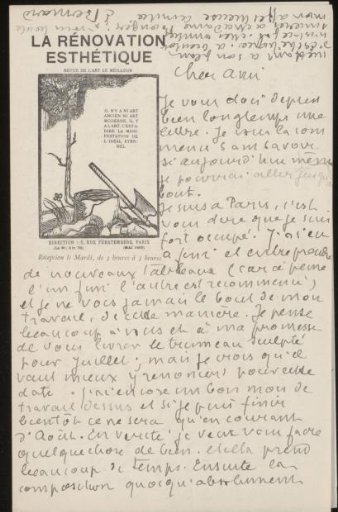 LA RÉNOVATION
ESTHÉTIQUE
REVUE DE L'ART LE MEILLEUR
IL N'Y A NI ART
ANCIEN NI ART
MODERNE. IL Y
A L'ART. C'EST A
DIRE LA MANI-
FESTATION DE
L'IDÉAL ÉTER-
NEL
DIRECTION : 5, RUE FURSTEMBERG, PARIS
Réception le Mardi, de 3 heures à 5 heures
Cher ami
Je vous dois depuis
bien longtemps une
lettre. Je vous la com
mence sans savoir
si aujourd'hui même
je pourrai aller jusqu'au
bout.
Je suis à Paris, c'est
vous dire que je suis
fort occupé. J'ai eu
à finir et entreprendre
de nouveaux tableaux (car à peine
l'un fini l'autre est recommencé)
et je ne vois jamais le bout de mon
travail, de cette manière. Je pense
beaucoup à vous et à ma promesse
de vous livrer le panneau sculpté
pour Juillet ; mais je crois qu'il
vaut mieux y renoncer pour cette
date. J'ai encore un bon mois de
travail dessus et si je puis finir
bientôt ce ne sera qu'en courant
d'Août. En vérité je veux vous faire
quelque chose de bien. et cela prend
beaucoup de temps. Ensuite la
composition quoiqu'absolument